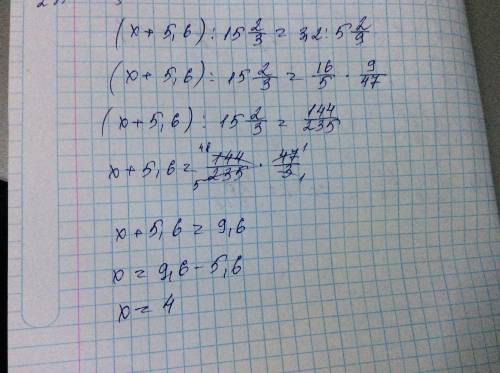 (x + 5,6) : 15 2/3 = 3,2 : 5 2/9
(x + 5,6) : 15 2/3 = 16/5 · 9/47
(x + 5,6) : 15 2/3 = 144/235
x + 5,6 = 48 144/235 5 · 47 1/3 1
x + 5,6 = 9,6
x = 9,6 - 5,6
x = 4